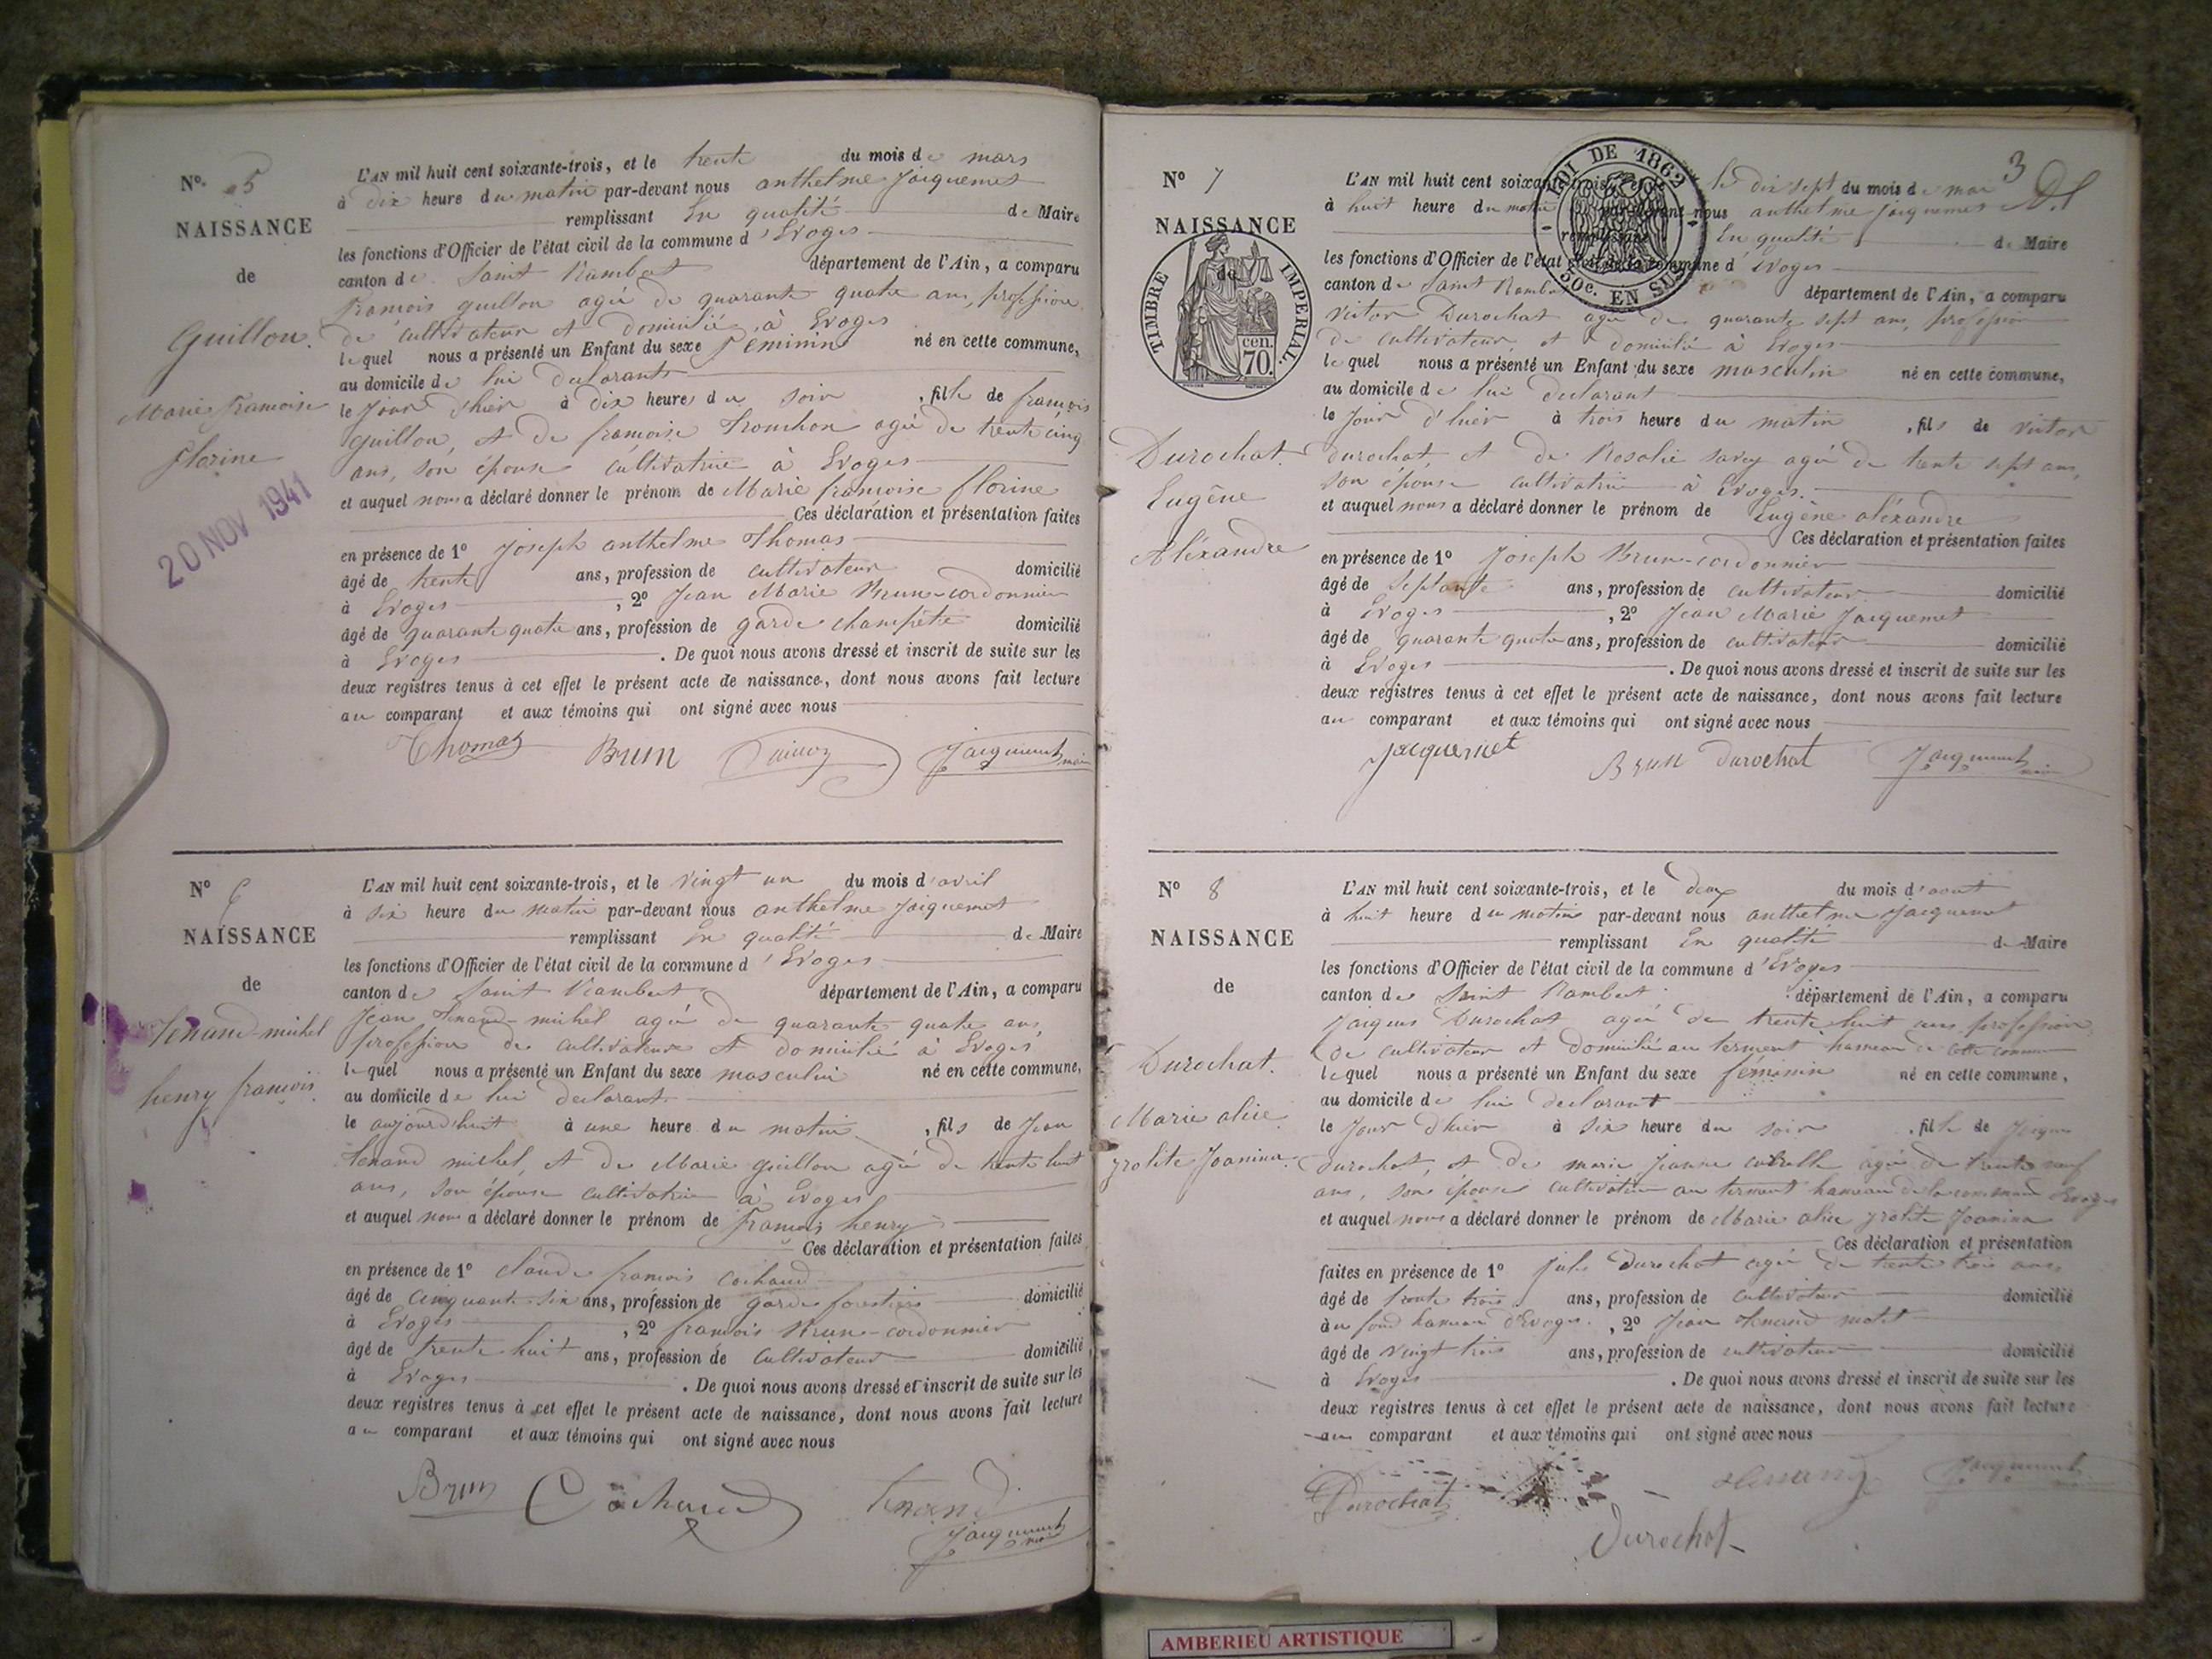 Nº 5
NAISSANCE
de
Guillon.
Marie françoise
florine
20 NOV 1941
L'AN mil huit cent soixante-trois, et le trente du mois de mars
à dix heure du matin par-devant nous anthelme Jacquemet
remplissant En qualité de Maire
les fonctions d'Officier de l'état civil de la commune d'Evoges
canton de Saint Rambert département de l'Ain, a comparu
François guillon agé de quarante quatre ans, profession
de cultivateur et domicilié à Evoges
lequel nous a présenté un Enfant du sexe féminin né en cette commune,
au domicile de lui declarant
le Jour d'hier à dix heure du soir , fille de françois
guillon, et de françoise Trouchon agée de trente cinq
ans, son épouse cultivatrice à Evoges
et auquel nous a déclaré donner le prénom de Marie françoise florine
Ces déclaration et présentation faites
en présence de 1º Joseph anthelme Thomas
âgé de trente ans, profession de cultivateur domicilié
à Evoges , 2º Jean Marie Brun-cordonnier
âgé de quarante quatre ans, profession de garde champêtre domicilié
à Evoges . De quoi nous avons dressé et inscrit de suite sur les
deux registres tenus à cet effet le présent acte de naissance, dont nous avons fait lecture
au comparant et aux témoins qui ont signé avec nous
Thomas Brun Guillon Jacquemet maire
Nº 6
NAISSANCE
de
Tenand-michel
henry françois
L'AN mil huit cent soixante-trois, et le vingt un du mois d'avril
à six heure du matin par-devant nous anthelme Jacquemet
remplissant En qualité de Maire
les fonctions d'Officier de l'état civil de la commune d'Evoges
canton de Saint Rambert département de l'Ain, a comparu
Jean Tenand-michel agé de quarante quatre ans,
profession de cultivateur et domicilié à Evoges
lequel nous a présenté un Enfant du sexe masculin né en cette commune,
au domicile de lui declarant
le aujourd'huit à une heure du matin , fils de Jean
tenand michel, et de Marie guillon agée de trente huit
ans, son épouse cultivatrice à Evoges
et auquel nous a déclaré donner le prénom de François henry
Ces déclaration et présentation faites
en présence de 1º Claude françois Cochaud
âgé de cinquante-six ans, profession de garde forestier domicilié
à Evoges , 2º françois Brun-cordonnier
âgé de trente huit ans, profession de cultivateur domicilié
à Evoges . De quoi nous avons dressé et inscrit de suite sur les
deux registres tenus à cet effet le présent acte de naissance, dont nous avons fait lecture
au comparant et aux témoins qui ont signé avec nous
Brun Cochaud tenand
Jacquemet maire
3
Nº 7
NAISSANCE
de
TIMBRE IMPERIAL.
cen. 70.
LOI DE 1862
50c. EN SUS
Durochat.
Eugêne
Aléxandre
L'AN mil huit cent soixante-trois, et le le dix sept du mois de mai
à huit heure du matin par-devant nous anthelme Jacquemet
remplissant En qualité de Maire
les fonctions d'Officier de l'état civil de la commune d'Evoges
canton de Saint Rambert département de l'Ain, a comparu
victor Durochat agé de quarante sept ans, profession
de cultivateur et domicilié à Evoges
lequel nous a présenté un Enfant du sexe masculin né en cette commune,
au domicile de lui declarant
le Jour d'hier à trois heure du matin , fils de victor
durochat, et de Rosalie savey agée de trente sept ans,
son épouse cultivatrice à Evoges.
et auquel nous a déclaré donner le prénom de Eugêne aléxandre
Ces déclaration et présentation faites
en présence de 1º Joseph Brun-cordonnier
âgé de septante ans, profession de cultivateur domicilié
à Evoges , 2º Jean Marie Jacquemet
âgé de quarante quatre ans, profession de cultivateur domicilié
à Evoges . De quoi nous avons dressé et inscrit de suite sur les
deux registres tenus à cet effet le présent acte de naissance, dont nous avons fait lecture
au comparant et aux témoins qui ont signé avec nous
Jacquemet Brun durochat Jacquemet maire
Nº 8
NAISSANCE
de
Durochat.
Marie alice
Joanina.
L'AN mil huit cent soixante-trois, et le deux du mois d'aout
à huit heure du matin par-devant nous anthelme Jacquemet
remplissant En qualité de Maire
les fonctions d'Officier de l'état civil de la commune d'Evoges
canton de Saint Rambert département de l'Ain, a comparu
Jacques Durochat agé de trente huit ans profession
de cultivateur et domicilié au terment hameau de cette commune
lequel nous a présenté un Enfant du sexe féminin né en cette commune,
au domicile de lui declarant
le Jour d'hier à six heure du soir , fille de Jacques
durochat, et de marie Jeanne agée de trente neuf
ans, son épouse cultivatrice au terment hameau de la commune d'Evoges
et auquel nous a déclaré donner le prénom de Marie alice Joanina
Ces déclaration et présentation
faites en présence de 1º Jules Durochat agé de trente trois ans
âgé de trente trois ans, profession de cultivateur domicilié
au fond hameau d'Evoges. , 2º Jean Tenand
âgé de vingt trois ans, profession de cultivateur domicilié
à Evoges . De quoi nous avons dressé et inscrit de suite sur les
deux registres tenus à cet effet le présent acte de naissance, dont nous avons fait lecture
au comparant et aux témoins qui ont signé avec nous
Durochat tenand Jacquemet
Durochat
AMBERIEU ARTISTIQUE